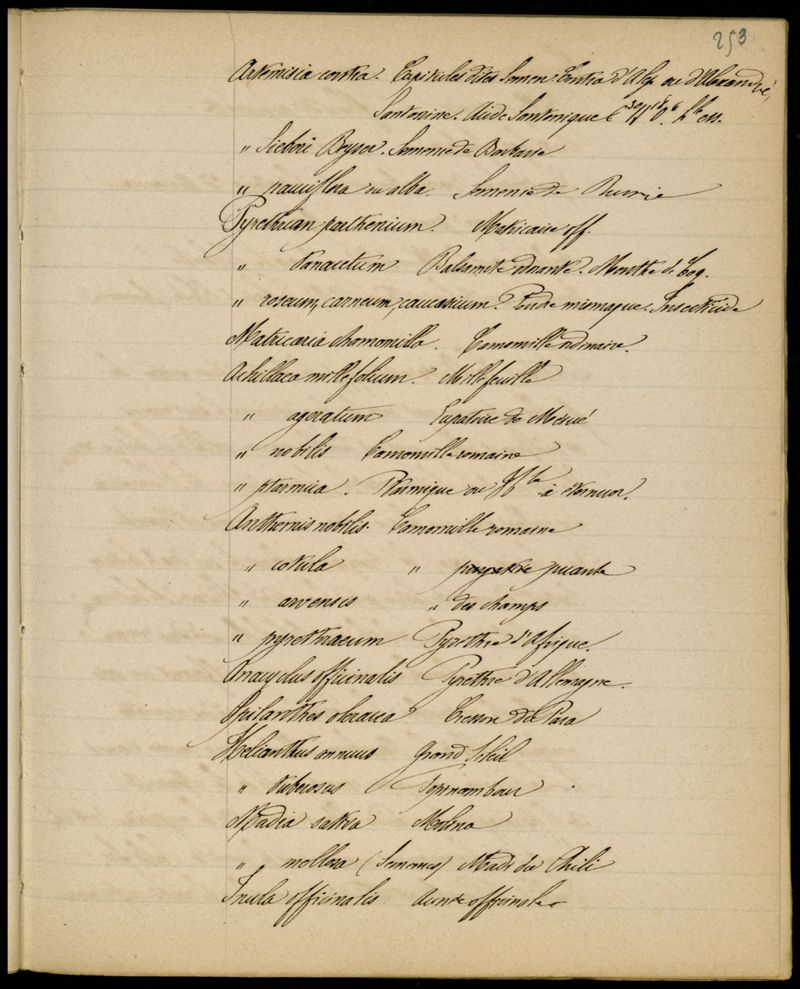 253
Artemisia contra. Capitules dites Semen-Contra d'Alep ou d'Alexandrie,
Santonine. Acide Santonique C30 H18 O6. Hle ess.
" Sieberi Semencine de Barbarie
" pauciflora ou alba. Semencine de Russie
Pyrethrum parthenium. Matricaire off.
" tanacetum Balsamite odorante. Menthe de Coq.
" roseum, carneum, caucasium. Insecticide
Matricaria chamomilla. Camomille ordinaire.
Achillaea millefolium. Millefeuille
" ageratum Eupatoire de Mésué
" nobilis Camomille romaine
" ptarmica. Ptarmique ou à éternuer.
Anthemis nobilis. Camomille romaine
" cotula " puante
" arvensis " des champs
" pyrethraeum Pyrèthre d'Afrique.
Anacyclus officinalis Pyrèthre d'Allemagne.
Spilanthes oleracea Cresson de Para
Helianthus annuus Grand Soleil
" tuberosus Topinambour
Madia sativa Molina
" mellosa (Semences) Madi du Chili
Inula officinalis Aunée officinale